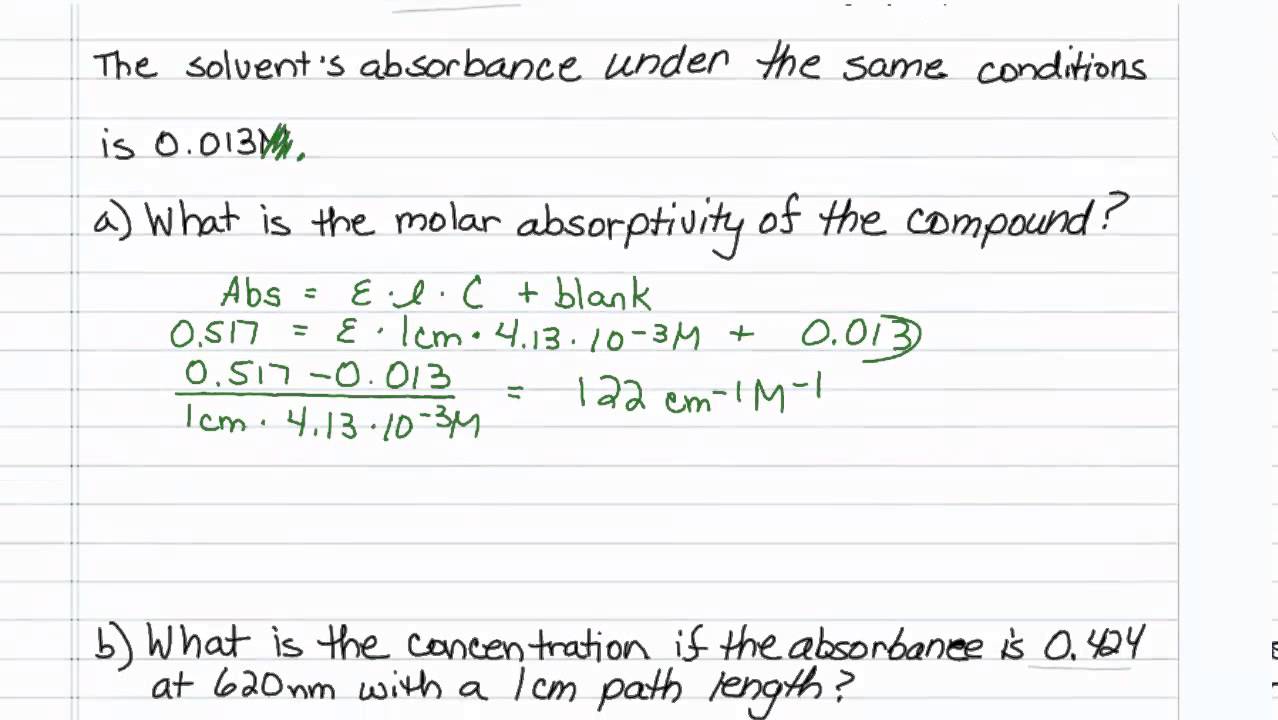 The solvent's absorbance under the same conditions
is 0.013M.
a) What is the molar absorptivity of the compound?
Abs = ε · l · C + blank
0.517 = ε · 1cm · 4.13 · 10⁻³M + 0.013
0.517 - 0.013
1cm · 4.13 · 10⁻³M
= 122 cm⁻¹ M⁻¹
b) What is the concentration if the absorbance is 0.424
at 620nm with a 1cm path length?